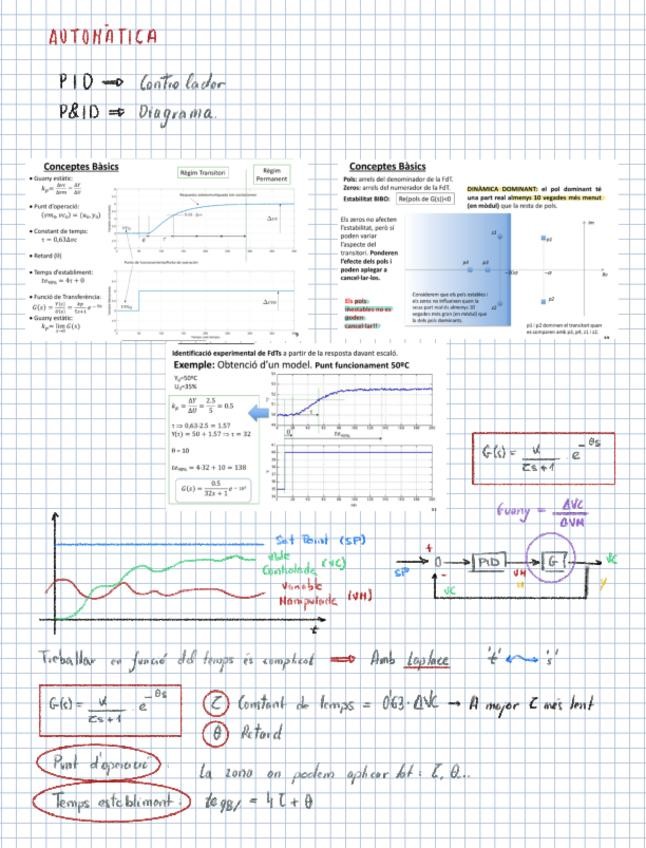 AUTOMÀTICA
PID → Controlador
P&ID ⇒ Diagrama.
Conceptes Bàsics
Règim Transitori
Règim Permanent
• Guany estàtic:
• Punt d'operació:
• Constant de temps:
τ = 0,63Δvc
• Retard (θ)
• Temps d'establiment:
• Funció de Transferència:
Guany estàtic:
Conceptes Bàsics
Pols: arrels del denominador de la FdT.
Zeros: arrels del numerador de la FdT.
Estabilitat BIBO: Re(pols de G(s))<0
DINÀMICA DOMINANT: el pol dominant té
una part real almenys 10 vegades més menut
(en mòdul) que la resta de pols.
Els zeros no afecten
l'estabilitat, però si
poden variar
l'aspecte del
transitori. Ponderen
l'efecte dels pols i
poden aplegar a
cancel·lar-los.
Els pols
inestables no es
poden
cancel·lar!!
Considerem que els pols estables i
els zeros no influeixen quan la
seua part real és almenys 10
vegades més gran (en mòdul) que
la dels pols dominants.
p1 i p2 dominen el transitori quan
es comparen amb p3, p4, c1 i z2.
Identificació experimental de FdTs a partir de la resposta davant escaló.
Exemple: Obtenció d'un model. Punt funcionament 50ºC
Y₀=50ºC
U₀=35%
kₚ = ΔY/ΔU = 2.5/5 = 0.5
τ ⇒ 0,63·2.5 = 1.57
Y(τ) = 50 + 1.57 ⇒ τ = 32
θ = 10
te₉₈% = 4·32 + 10 = 138
G(s) = 0.5/(32s + 1) e^-10s
G(s) = K/(τs+1) · e^-θs
Guany = ΔVC/ΔVM
Set Point (SP)
Vble
Controlada (VC)
Variable
Manipulada (VM)
t
SP + - PID VM u G VC y
VC
Treballar en funció del temps és complicat ⇒ Amb Laplace 't' ↔ 's'
G(s) = K/(τs+1) · e^-θs
τ Constant de temps = 0'63·ΔVC → A major τ més lent
θ Retard
Punt d'operació: la zona on podem aplicar tot: τ, θ...
Temps establiment: te98% = 4τ + θ